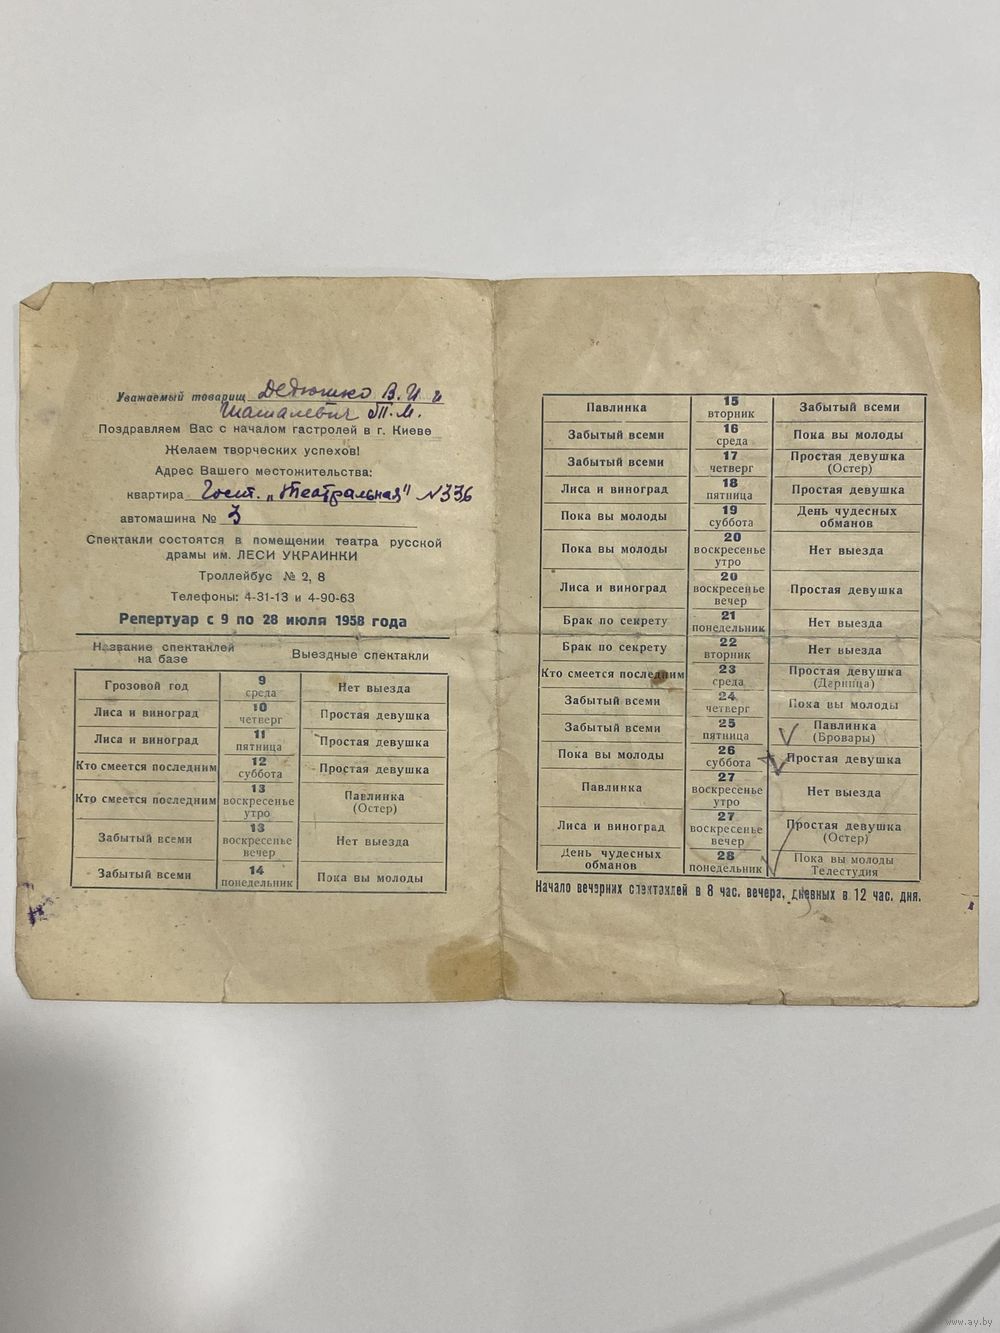 Уважаемый товарищ Дедюшко В. И. и
Шаталевич Т. М.
Поздравляем Вас с началом гастролей в г. Киеве
Желаем творческих успехов!
Адрес Вашего местожительства:
квартира Гост. „Театральная" №336
автомашина № 3
Спектакли состоятся в помещении театра русской
драмы им. ЛЕСИ УКРАИНКИ
Троллейбус № 2, 8
Телефоны: 4-31-13 и 4-90-63
Репертуар с 9 по 28 июля 1958 года
Название спектаклей на базе Выездные спектакли
Грозовой год 9 среда Нет выезда
Лиса и виноград 10 четверг Простая девушка
Лиса и виноград 11 пятница Простая девушка
Кто смеется последним 12 суббота Простая девушка
Кто смеется последним 13 воскресенье утро Павлинка (Остер)
Забытый всеми 13 воскресенье вечер Нет выезда
Забытый всеми 14 понедельник Пока вы молоды
Павлинка 15 вторник Забытый всеми
Забытый всеми 16 среда Пока вы молоды
Забытый всеми 17 четверг Простая девушка (Остер)
Лиса и виноград 18 пятница Простая девушка
Пока вы молоды 19 суббота День чудесных обманов
Пока вы молоды 20 воскресенье утро Нет выезда
Лиса и виноград 20 воскресенье вечер Простая девушка
Брак по секрету 21 понедельник Нет выезда
Брак по секрету 22 вторник Нет выезда
Кто смеется последним 23 среда Простая девушка (Дарница)
Забытый всеми 24 четверг Пока вы молоды
Забытый всеми 25 пятница Павлинка (Бровары)
Пока вы молоды 26 суббота Простая девушка
Павлинка 27 воскресенье утро Нет выезда
Лиса и виноград 27 воскресенье вечер Простая девушка (Остер)
День чудесных обманов 28 понедельник Пока вы молоды Телестудия
Начало вечерних спектаклей в 8 час. вечера, дневных в 12 час. дня.
www.ay.by